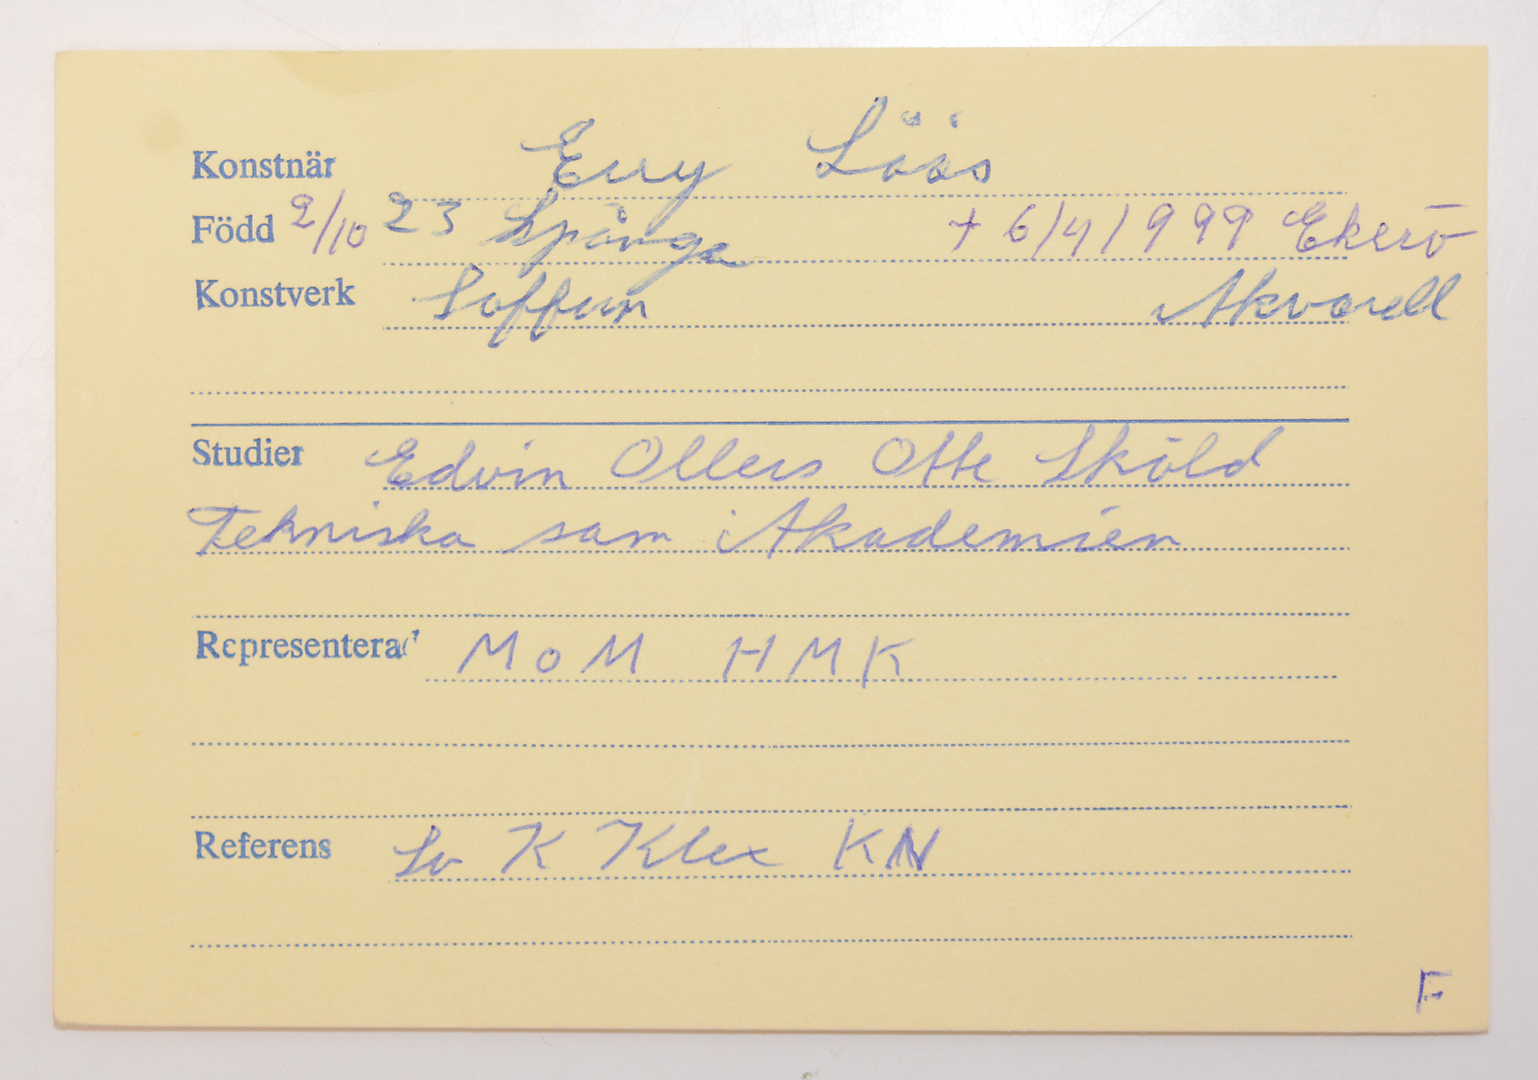 Konstnär Erry Löös
Född 2/10 23 Spånga + 6/4 1999 Ekerö
Konstverk Soffun Akvarell
Studier Edvin Ollers Otte Sköld
Tekniska sam i Akademien
Representerad MoM HMK
Referens Sv K Klex KN
F